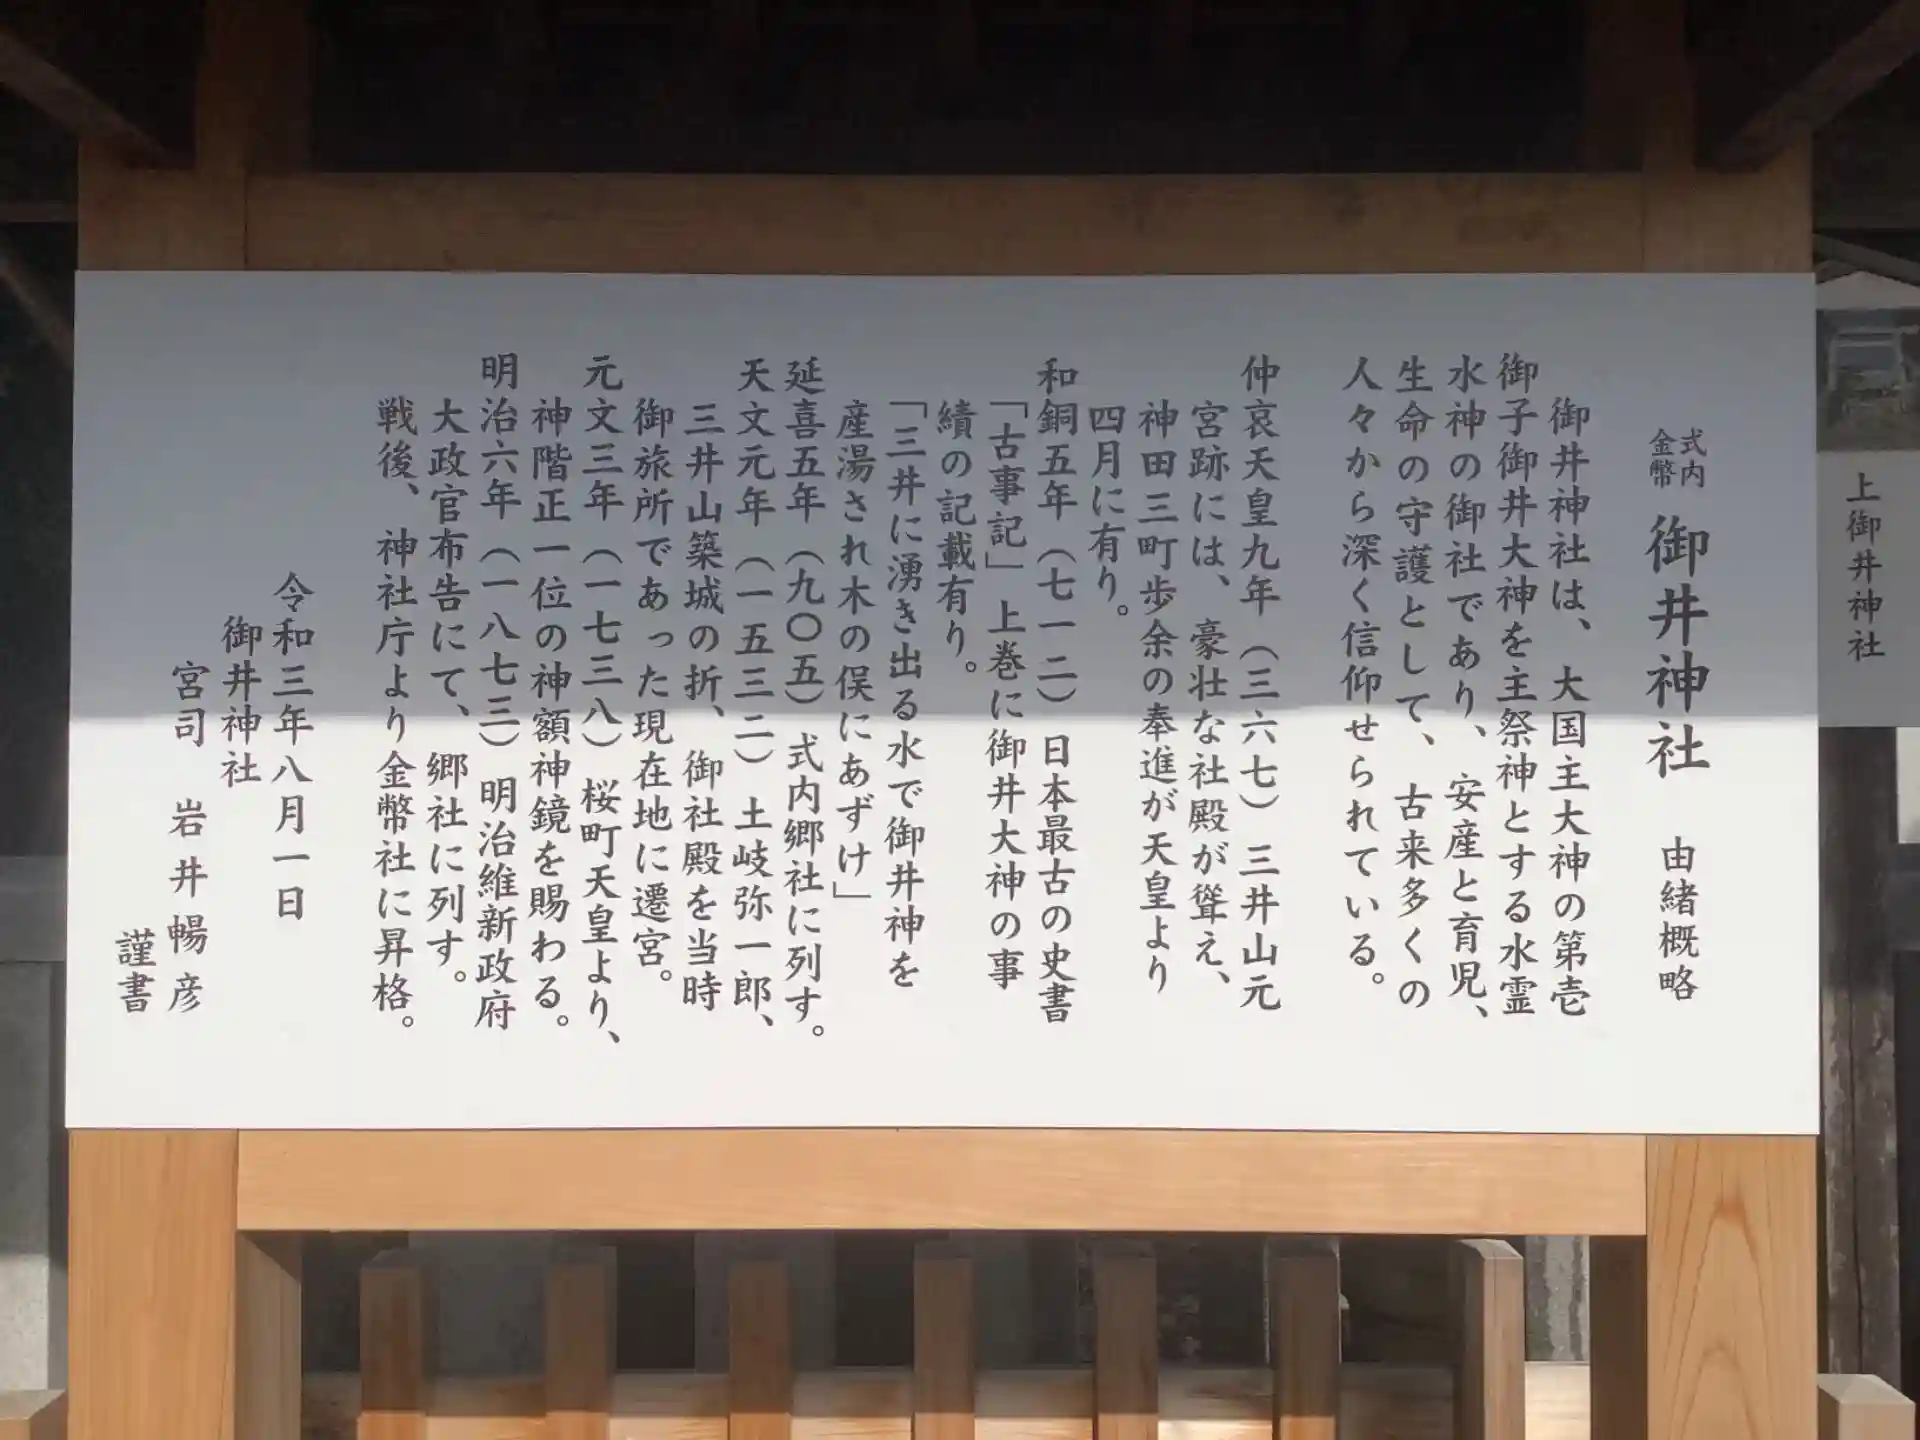 式内
金幣
御井神社 由緒概略
御井神社は、大国主大神の第壱
御子御井大神を主祭神とする水霊
水神の御社であり、安産と育児、
生命の守護として、古来多くの
人々から深く信仰せられている。
仲哀天皇九年（三六七）三井山元
宮跡には、豪壮な社殿が聳え、
神田三町歩余の奉進が天皇より
四月に有り。
和銅五年（七一二）日本最古の史書
「古事記」上巻に御井大神の事
績の記載有り。
「三井に湧き出る水で御井神を
産湯され木の俣にあずけ」
延喜五年（九〇五）式内郷社に列す。
天文元年（一五三二）土岐弥一郎、
三井山築城の折、御社殿を当時
御旅所であった現在地に遷宮。
元文三年（一七三八）桜町天皇より、
神階正一位の神額神鏡を賜わる。
明治六年（一八七三）明治維新政府
大政官布告にて、郷社に列す。
戦後、神社庁より金幣社に昇格。
令和三年八月一日
御井神社
宮司 岩井暢彦
謹書
上御井神社